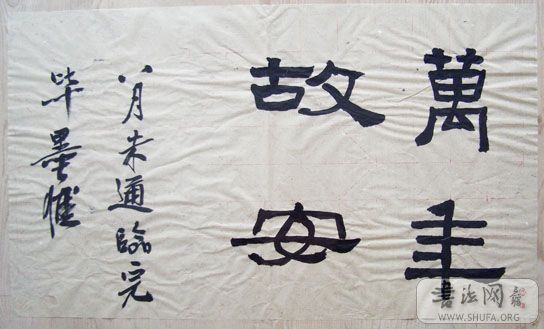 萬年
故安
八月末通臨完
毕墨
書法网
WWW.SHUFA.ORG